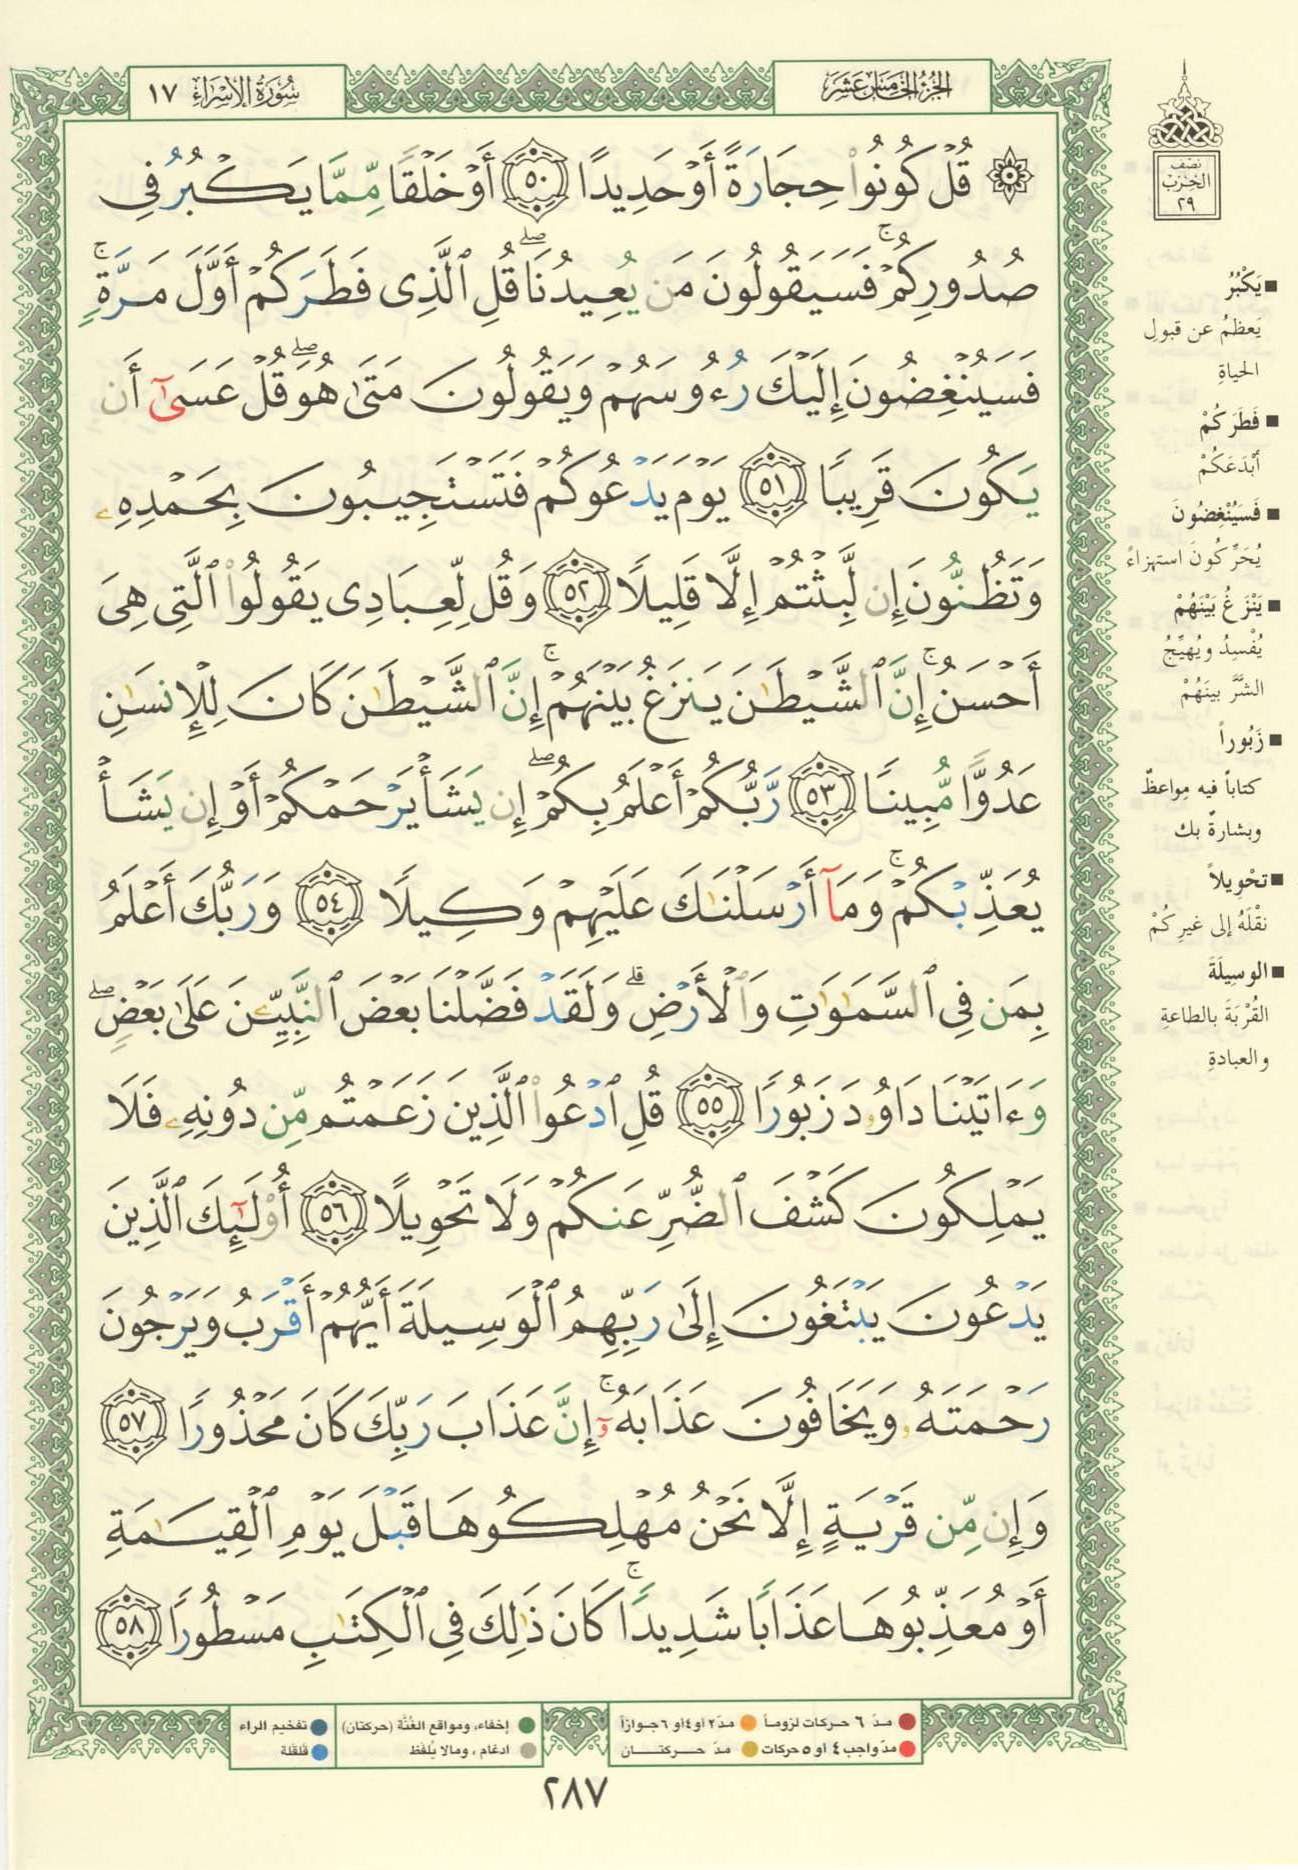 سُورَةُ الإِسْرَاءِ ١٧
الجُزْءُ الخَامِسَ عَشَرَ
نصف
الحزب
٢٩
۞ قُلْ كُونُوا۟ حِجَارَةً أَوْ حَدِيدًا ٥٠ أَوْ خَلْقًا مِّمَّا يَكْبُرُ فِى
صُدُورِكُمْ ۚ فَسَيَقُولُونَ مَن يُعِيدُنَا ۖ قُلِ ٱلَّذِى فَطَرَكُمْ أَوَّلَ مَرَّةٍ ۚ
فَسَيُنْغِضُونَ إِلَيْكَ رُءُوسَهُمْ وَيَقُولُونَ مَتَىٰ هُوَ ۖ قُلْ عَسَىٰٓ أَن
يَكُونَ قَرِيبًا ٥١ يَوْمَ يَدْعُوكُمْ فَتَسْتَجِيبُونَ بِحَمْدِهِۦ
وَتَظُنُّونَ إِن لَّبِثْتُمْ إِلَّا قَلِيلًا ٥٢ وَقُل لِّعِبَادِى يَقُولُوا۟ ٱلَّتِى هِىَ
أَحْسَنُ ۚ إِنَّ ٱلشَّيْطَٰنَ يَنزَغُ بَيْنَهُمْ ۚ إِنَّ ٱلشَّيْطَٰنَ كَانَ لِلْإِنسَٰنِ
عَدُوًّا مُّبِينًا ٥٣ رَّبُّكُمْ أَعْلَمُ بِكُمْ ۖ إِن يَشَأْ يَرْحَمْكُمْ أَوْ إِن يَشَأْ
يُعَذِّبْكُمْ ۚ وَمَآ أَرْسَلْنَٰكَ عَلَيْهِمْ وَكِيلًا ٥٤ وَرَبُّكَ أَعْلَمُ
بِمَن فِى ٱلسَّمَٰوَٰتِ وَٱلْأَرْضِ ۗ وَلَقَدْ فَضَّلْنَا بَعْضَ ٱلنَّبِيِّۦنَ عَلَىٰ بَعْضٍ ۖ
وَءَاتَيْنَا دَاوُۥدَ زَبُورًا ٥٥ قُلِ ٱدْعُوا۟ ٱلَّذِينَ زَعَمْتُم مِّن دُونِهِۦ فَلَا
يَمْلِكُونَ كَشْفَ ٱلضُّرِّ عَنكُمْ وَلَا تَحْوِيلًا ٥٦ أُو۟لَٰٓئِكَ ٱلَّذِينَ
يَدْعُونَ يَبْتَغُونَ إِلَىٰ رَبِّهِمُ ٱلْوَسِيلَةَ أَيُّهُمْ أَقْرَبُ وَيَرْجُونَ
رَحْمَتَهُۥ وَيَخَافُونَ عَذَابَهُۥٓ ۚ إِنَّ عَذَابَ رَبِّكَ كَانَ مَحْذُورًا ٥٧
وَإِن مِّن قَرْيَةٍ إِلَّا نَحْنُ مُهْلِكُوهَا قَبْلَ يَوْمِ ٱلْقِيَٰمَةِ
أَوْ مُعَذِّبُوهَا عَذَابًا شَدِيدًا ۚ كَانَ ذَٰلِكَ فِى ٱلْكِتَٰبِ مَسْطُورًا ٥٨
■ يَكْبُرُ
يَعظمُ عن قبولِ
الحياةِ
■ فَطَرَكُمْ
أبْدَعَكُمْ
■ فَسَيُنْغِضُونَ
يُحَرِّكُونَ استهزاءً
■ يَنْزَغُ بَيْنَهُمْ
يُفْسِدُ ويُهيِّجُ
الشَّرَّ بينَهُمْ
■ زَبُوراً
كتاباً فيه مواعظٌ
وبشارةٌ بك
■ تحْوِيلاً
نقْلَهُ إلى غيرِكُمْ
■ الوسِيلَةَ
القُرْبَةَ بالطاعةِ
والعبادةِ
مدّ ٦ حركات لزوماً مدّ ٢ أو ٤ أو ٦ جوازاً
مدّ واجب ٤ أو ٥ حركات مدّ حركتان
إخفاء، ومواقع الغُنَّة (حركتان) تفخيم الراء
ادغام، وما لا يُلفَظ قلقلة
٢٨٧